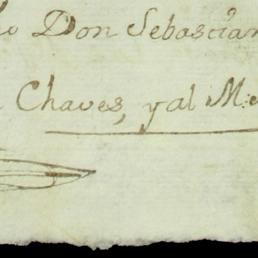 Don Sebastian
Chaves, y al